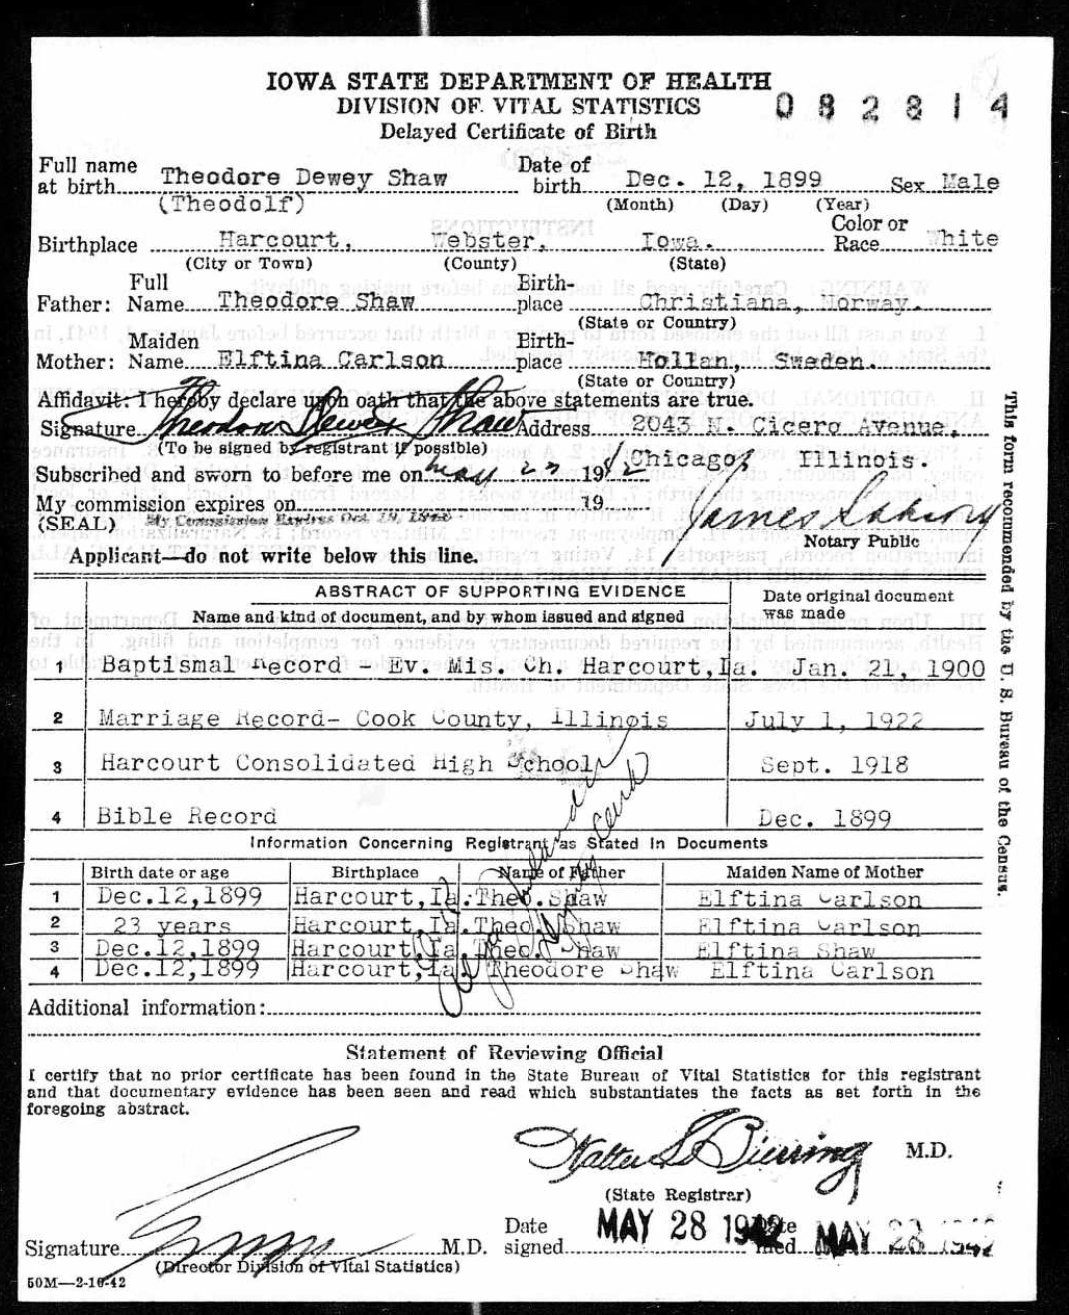 IOWA STATE DEPARTMENT OF HEALTH
DIVISION OF VITAL STATISTICS
082814
Delayed Certificate of Birth
Full name at birth Theodore Dewey Shaw Date of birth Dec. 12, 1899 Sex Male
(Theodolf) (Month) (Day) (Year)
Birthplace Harcourt, Webster, Iowa. Color or Race White
(City or Town) (County) (State)
Father: Full Name Theodore Shaw Birth-place Christiana, Norway.
(State or Country)
Mother: Maiden Name Elftina Carlson Birth-place Hollan, Sweden.
(State or Country)
Affidavit: I hereby declare upon oath that the above statements are true.
Signature Theodore Dewey Shaw Address 2043 N. Cicero Avenue,
(To be signed by registrant if possible)
Chicago, Illinois.
Subscribed and sworn to before me on May 19 42
My commission expires on 19
(SEAL) My Commission Expires Oct.
James
Notary Public
Applicant—do not write below this line.
ABSTRACT OF SUPPORTING EVIDENCE
Name and kind of document, and by whom issued and signed
Date original document was made
1 Baptismal Record - Ev. Mis. Ch. Harcourt, Ia. Jan. 21, 1900
2 Marriage Record- Cook County, Illinois July 1, 1922
3 Harcourt Consolidated High School Sept. 1918
4 Bible Record Dec. 1899
Information Concerning Registrant as Stated in Documents
Birth date or age Birthplace Name of Father Maiden Name of Mother
1 Dec.12,1899 Harcourt,Ia. Theo. Shaw Elftina Carlson
2 23 years Harcourt,Ia. Theo. Shaw Elftina Carlson
3 Dec.12,1899 Harcourt,Ia. Theo. Shaw Elftina Shaw
4 Dec.12,1899 Harcourt,Ia. Theodore Shaw Elftina Carlson
Additional information:
Statement of Reviewing Official
I certify that no prior certificate has been found in the State Bureau of Vital Statistics for this registrant
and that documentary evidence has been seen and read which substantiates the facts as set forth in the
foregoing abstract.
Walter L Bierring M.D.
(State Registrar)
Signature M.D. Date signed MAY 28 1942 Date filed MAY 28 1942
(Director Division of Vital Statistics)
50M—2-16-42
This form recommended by the U. S. Bureau of the Census.